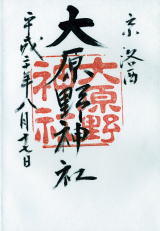 京洛西
大原野神社
大原野
神社
平成三年八月十七日